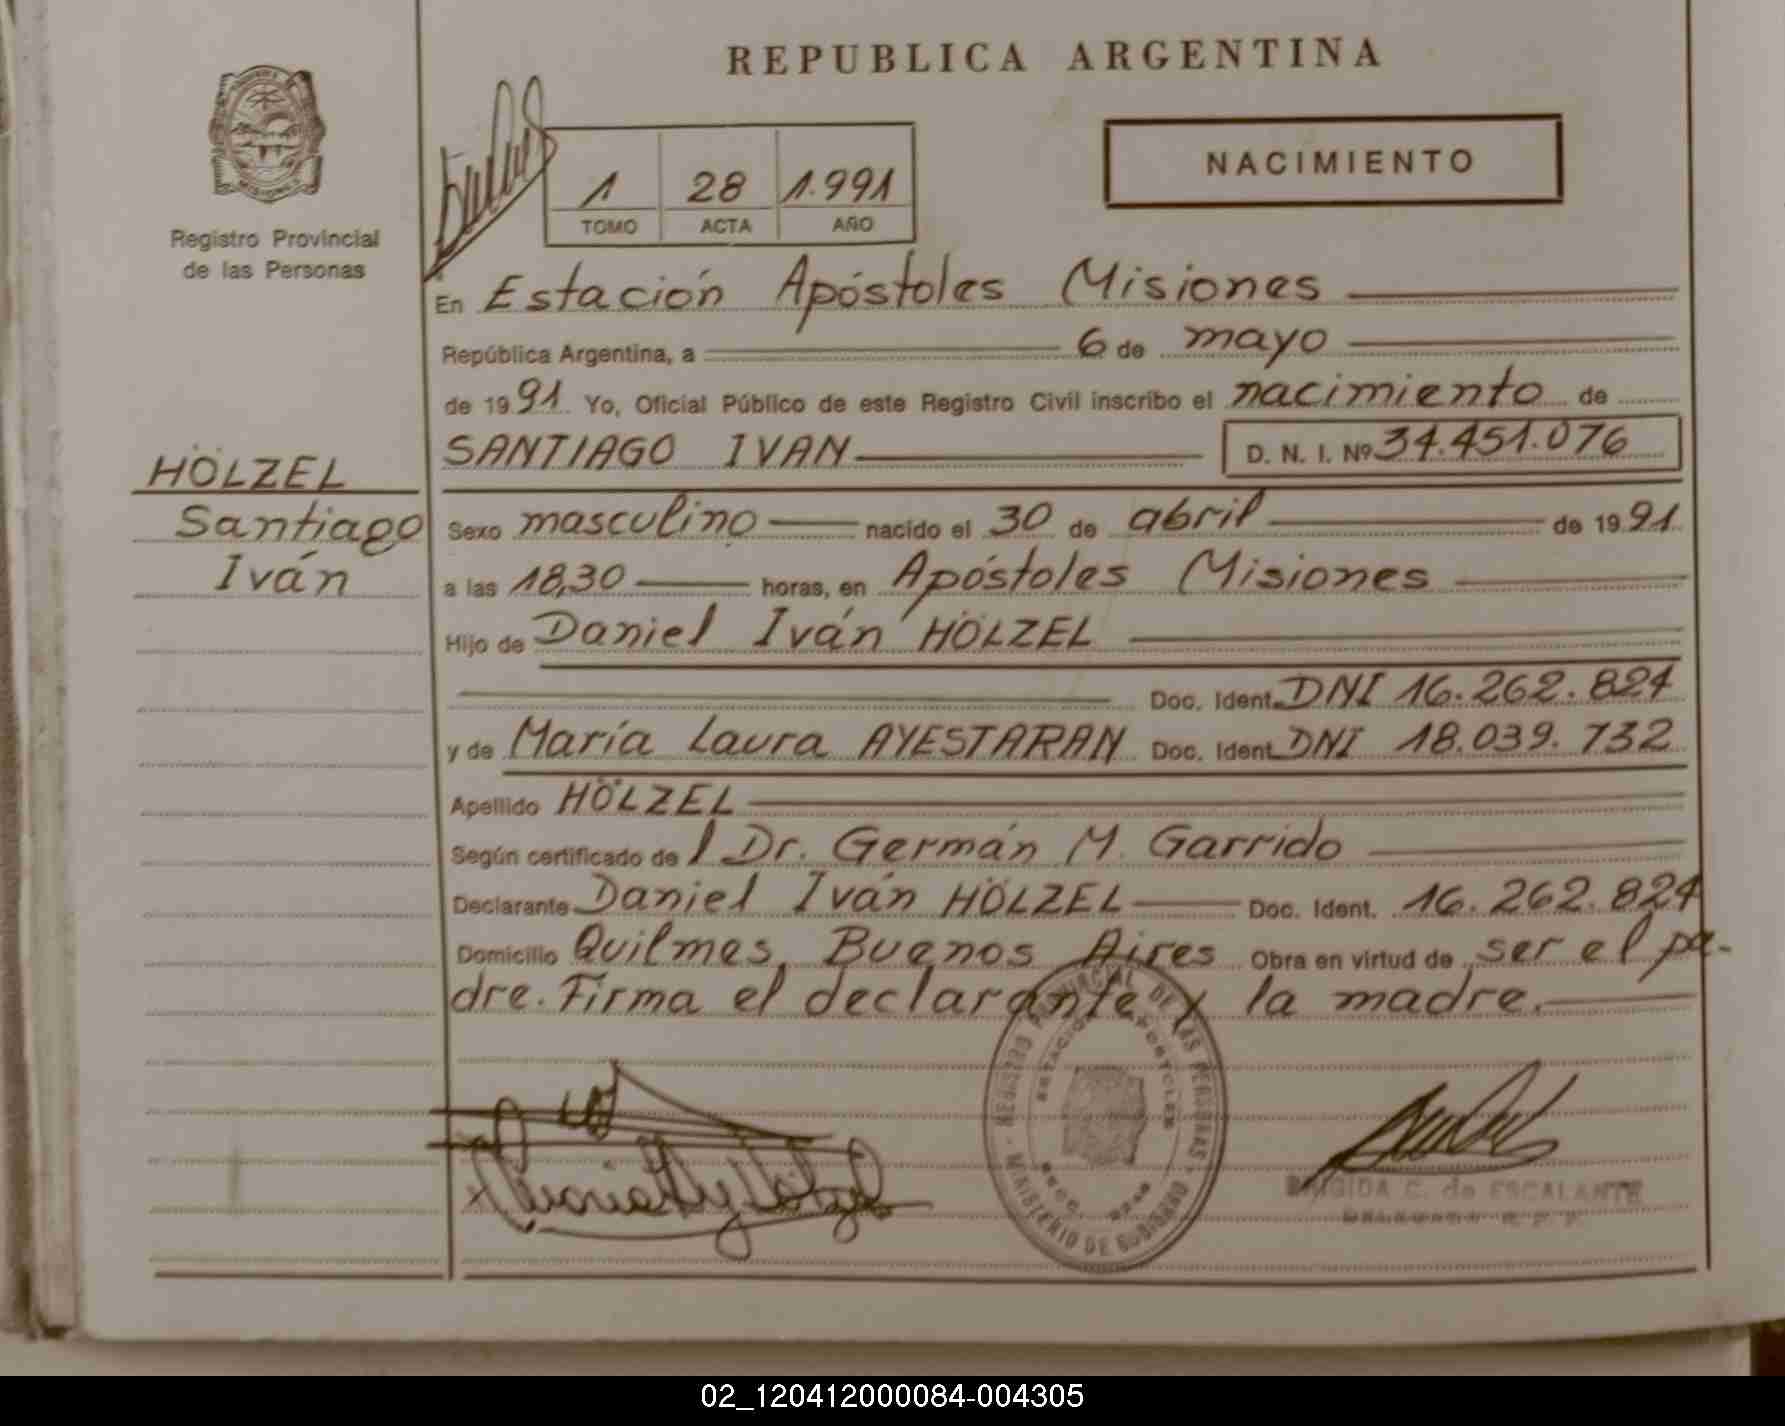 REPUBLICA ARGENTINA
NACIMIENTO
1 28 1.991
TOMO ACTA AÑO
MISIONES
Registro Provincial
de las Personas
En Estación Apóstoles Misiones
República Argentina, a 6 de mayo
de 1991 Yo, Oficial Público de este Registro Civil inscribo el nacimiento de
SANTIAGO IVAN D. N. I. Nº 34.451.076
HÖLZEL
Santiago
Iván
Sexo masculino nacido el 30 de abril de 1991
a las 18,30 horas, en Apóstoles Misiones
Hijo de Daniel Iván HÖLZEL
Doc. Ident. DNI 16.262.824
y de María Laura AYESTARAN Doc. Ident. DNI 18.039.732
Apellido HÖLZEL
Según certificado de l Dr. Germán M. Garrido
Declarante Daniel Iván HÖLZEL Doc. Ident. 16.262.824
Domicilio Quilmes, Buenos Aires Obra en virtud de ser el pa-
dre. Firma el declarante y la madre.
REGISTRO PROVINCIAL DE LAS PERSONAS
ESTACION APOSTOLES
MINISTERIO DE GOBIERNO
BRIGIDA C. de ESCALANTE
02_120412000084-004305